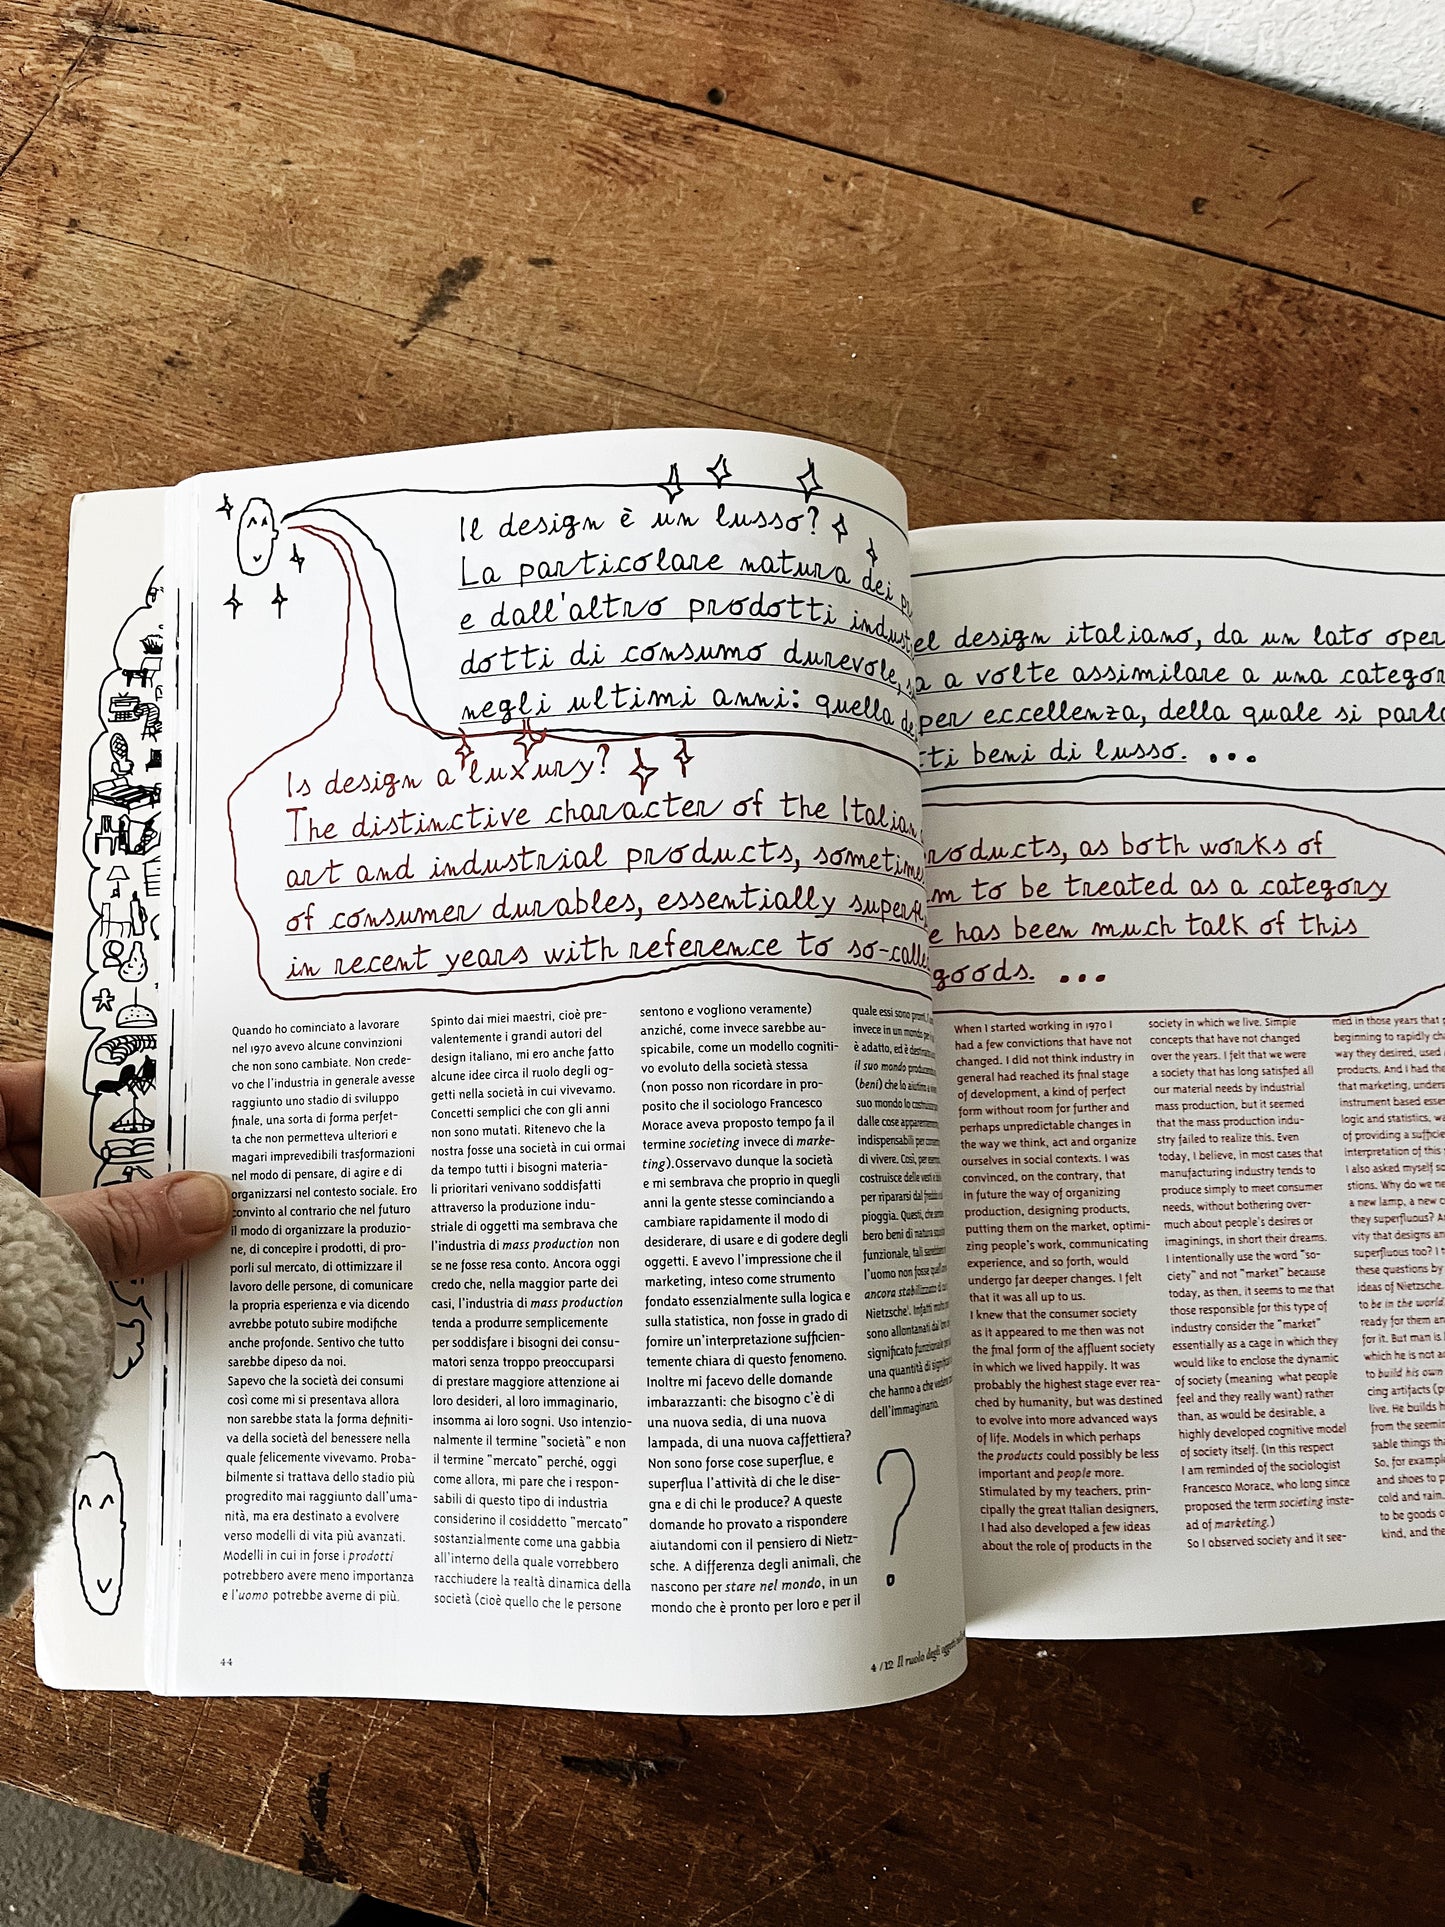 Il design è un lusso?
La particolare natura dei
e dall'altro prodotti
dotti di consumo durevole,
negli ultimi anni: quella
el design italiano, da un lato
a volte assimilare a una
per eccellenza, della quale si
beni di lusso. ...
Is design a luxury?
The distinctive character of the Italian
art and industrial products,
of consumer durables, essentially
in recent years with reference to
as both works of
to be treated as a category
has been much talk of this
goods. ...
Quando ho cominciato a lavorare
nel 1970 avevo alcune convinzioni
che non sono cambiate. Non crede-
vo che l'industria in generale avesse
raggiunto uno stadio di sviluppo
finale, una sorta di forma perfet-
ta che non permetteva ulteriori e
magari imprevedibili trasformazioni
nel modo di pensare, di agire e di
organizzarsi nel contesto sociale. Ero
convinto al contrario che nel futuro
il modo di organizzare la produzio-
ne, di concepire i prodotti, di pro-
porli sul mercato, di ottimizzare il
lavoro delle persone, di comunicare
la propria esperienza e via dicendo
avrebbe potuto subire modifiche
anche profonde. Sentivo che tutto
sarebbe dipeso da noi.
Sapevo che la società dei consumi
così come mi si presentava allora
non sarebbe stata la forma definiti-
va della società del benessere nella
quale felicemente vivevamo. Proba-
bilmente si trattava dello stadio più
progredito mai raggiunto dall'uma-
nità, ma era destinato a evolvere
verso modelli di vita più avanzati.
Modelli in cui in forse i prodotti
potrebbero avere meno importanza
e l'uomo potrebbe averne di più.
Spinto dai miei maestri, cioè pre-
valentemente i grandi autori del
design italiano, mi ero anche fatto
alcune idee circa il ruolo degli og-
getti nella società in cui vivevamo.
Concetti semplici che con gli anni
non sono mutati. Ritenevo che la
nostra fosse una società in cui ormai
da tempo tutti i bisogni materia-
li prioritari venivano soddisfatti
attraverso la produzione indu-
striale di oggetti ma sembrava che
l'industria di mass production non
se ne fosse resa conto. Ancora oggi
credo che, nella maggior parte dei
casi, l'industria di mass production
tenda a produrre semplicemente
per soddisfare i bisogni dei consu-
matori senza troppo preoccuparsi
di prestare maggiore attenzione ai
loro desideri, al loro immaginario,
insomma ai loro sogni. Uso intenzio-
nalmente il termine "società" e non
il termine "mercato" perché, oggi
come allora, mi pare che i respon-
sabili di questo tipo di industria
considerino il cosiddetto "mercato"
sostanzialmente come una gabbia
all'interno della quale vorrebbero
racchiudere la realtà dinamica della
società (cioè quello che le persone
sentono e vogliono veramente)
anziché, come invece sarebbe au-
spicabile, come un modello cogniti-
vo evoluto della società stessa
(non posso non ricordare in pro-
posito che il sociologo Francesco
Morace aveva proposto tempo fa il
termine societing invece di marke-
ting).Osservavo dunque la società
e mi sembrava che proprio in quegli
anni la gente stesse cominciando a
cambiare rapidamente il modo di
desiderare, di usare e di godere degli
oggetti. E avevo l'impressione che il
marketing, inteso come strumento
fondato essenzialmente sulla logica e
sulla statistica, non fosse in grado di
fornire un'interpretazione sufficien-
temente chiara di questo fenomeno.
Inoltre mi facevo delle domande
imbarazzanti: che bisogno c'è di
una nuova sedia, di una nuova
lampada, di una nuova caffettiera?
Non sono forse cose superflue, e
superflua l'attività di che le dise-
gna e di chi le produce? A queste
domande ho provato a rispondere
aiutandomi con il pensiero di Nietz-
sche. A differenza degli animali, che
nascono per stare nel mondo, in un
mondo che è pronto per loro e per il
quale essi sono pronti,
invece in un mondo
è adatto, ed è
il suo mondo
(beni) che lo
suo mondo lo
dalle cose
indispensabili per
di vivere. Così, per
costruisce delle
per ripararsi dal freddo
pioggia. Questi, che
bero beni di natura
funzionale, tali
l'uomo non fosse
ancora stabilizzato
Nietzsche'. Infatti
sono allontanati dal loro
significato funzionale
una quantità di
che hanno a che vedere
dell'immaginario.
?
44
4/12 Il ruolo degli oggetti
When I started working in 1970 I
had a few convictions that have not
changed. I did not think industry in
general had reached its final stage
of development, a kind of perfect
form without room for further and
perhaps unpredictable changes in
the way we think, act and organize
ourselves in social contexts. I was
convinced, on the contrary, that
in future the way of organizing
production, designing products,
putting them on the market, optimi-
zing people's work, communicating
experience, and so forth, would
undergo far deeper changes. I felt
that it was all up to us.
I knew that the consumer society
as it appeared to me then was not
the final form of the affluent society
in which we lived happily. It was
probably the highest stage ever rea-
ched by humanity, but was destined
to evolve into more advanced ways
of life. Models in which perhaps
the products could possibly be less
important and people more.
Stimulated by my teachers, prin-
cipally the great Italian designers,
I had also developed a few ideas
about the role of products in the
society in which we live. Simple
concepts that have not changed
over the years. I felt that we were
a society that has long satisfied all
our material needs by industrial
mass production, but it seemed
that the mass production indu-
stry failed to realize this. Even
today, I believe, in most cases that
manufacturing industry tends to
produce simply to meet consumer
needs, without bothering over-
much about people's desires or
imaginings, in short their dreams.
I intentionally use the word "so-
ciety" and not "market" because
today, as then, it seems to me that
those responsible for this type of
industry consider the "market"
essentially as a cage in which they
would like to enclose the dynamic
of society (meaning what people
feel and they really want) rather
than, as would be desirable, a
highly developed cognitive model
of society itself. (In this respect
I am reminded of the sociologist
Francesco Morace, who long since
proposed the term societing inste-
ad of marketing.)
So I observed society and it see-
med in those years that
beginning to rapidly
way they desired, used
products. And I had the
that marketing,
instrument based
logic and statistics,
of providing a
interpretation of this
I also asked myself
stions. Why do we
a new lamp, a new
they superfluous?
vity that designs
superfluous too? I
these questions by
ideas of Nietzsche.
to be in the world
ready for them
for it. But man is
which he is not
to build his own
cing artifacts
live. He builds
from the
sable things
So, for example
and shoes to
cold and rain.
to be goods
kind, and